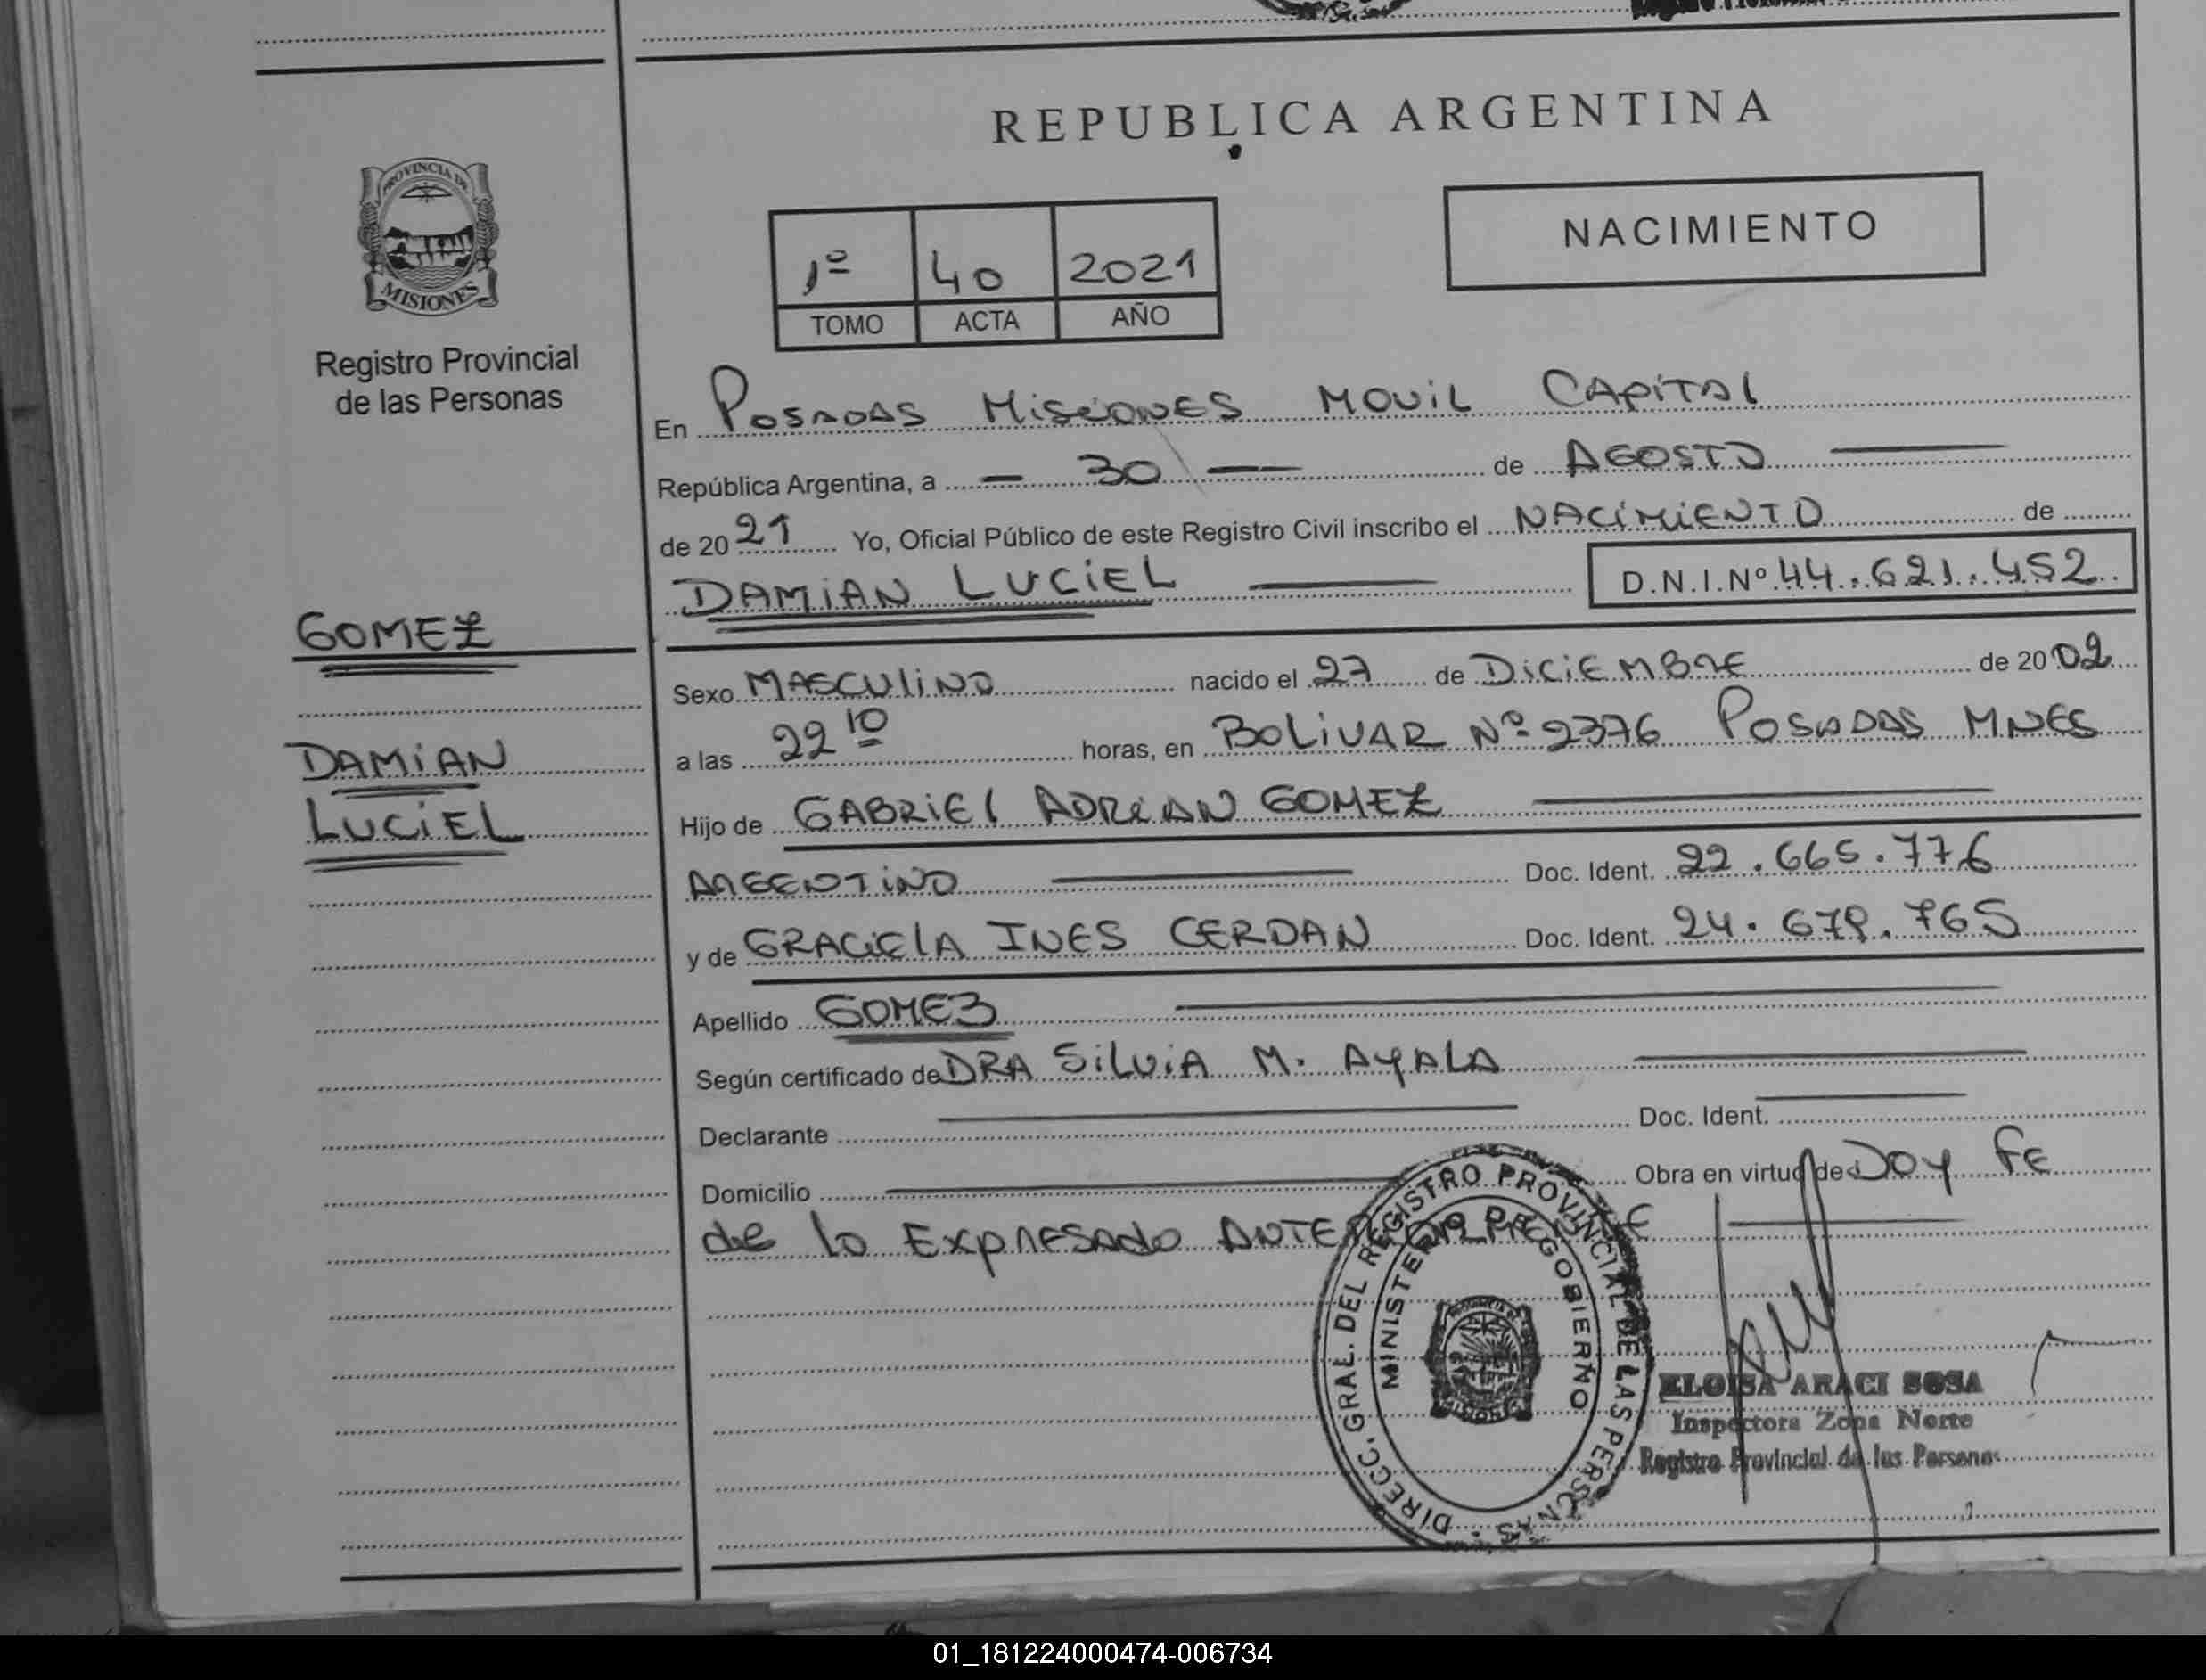 REPUBLICA ARGENTINA
PROVINCIA DE
MISIONES
Registro Provincial
de las Personas
NACIMIENTO
1º 40 2021
TOMO ACTA AÑO
En POSADAS MISIONES MOVIL CAPITAL
República Argentina, a — 30 — de AGOSTO —
de 20 21 Yo, Oficial Público de este Registro Civil inscribo el NACIMIENTO de
DAMIAN LUCIEL — D.N.I.Nº 44.621.452
GOMEZ
DAMIAN
LUCIEL
Sexo MASCULINO nacido el 27 de DICIEMBRE de 20 02
a las 22 10 horas, en BOLIVAR Nº 2376 POSADAS MNES
Hijo de GABRIEL ADRIAN GOMEZ
ARGENTINO — Doc. Ident. 22.665.776
y de GRACIELA INES CERDAN Doc. Ident. 24.679.765
Apellido GOMEZ
Según certificado de DRA SILVIA M. AYALA
Declarante Doc. Ident.
Domicilio Obra en virtud de DOY FE
de lo Expresado
DIRECC. GRAL. DEL REGISTRO PROVINCIAL DE LAS PERSONAS
MINISTERIO DE GOBIERNO
ELOISA ARACI SOSA
Inspectora Zona Norte
Registro Provincial de las Personas
01_181224000474-006734